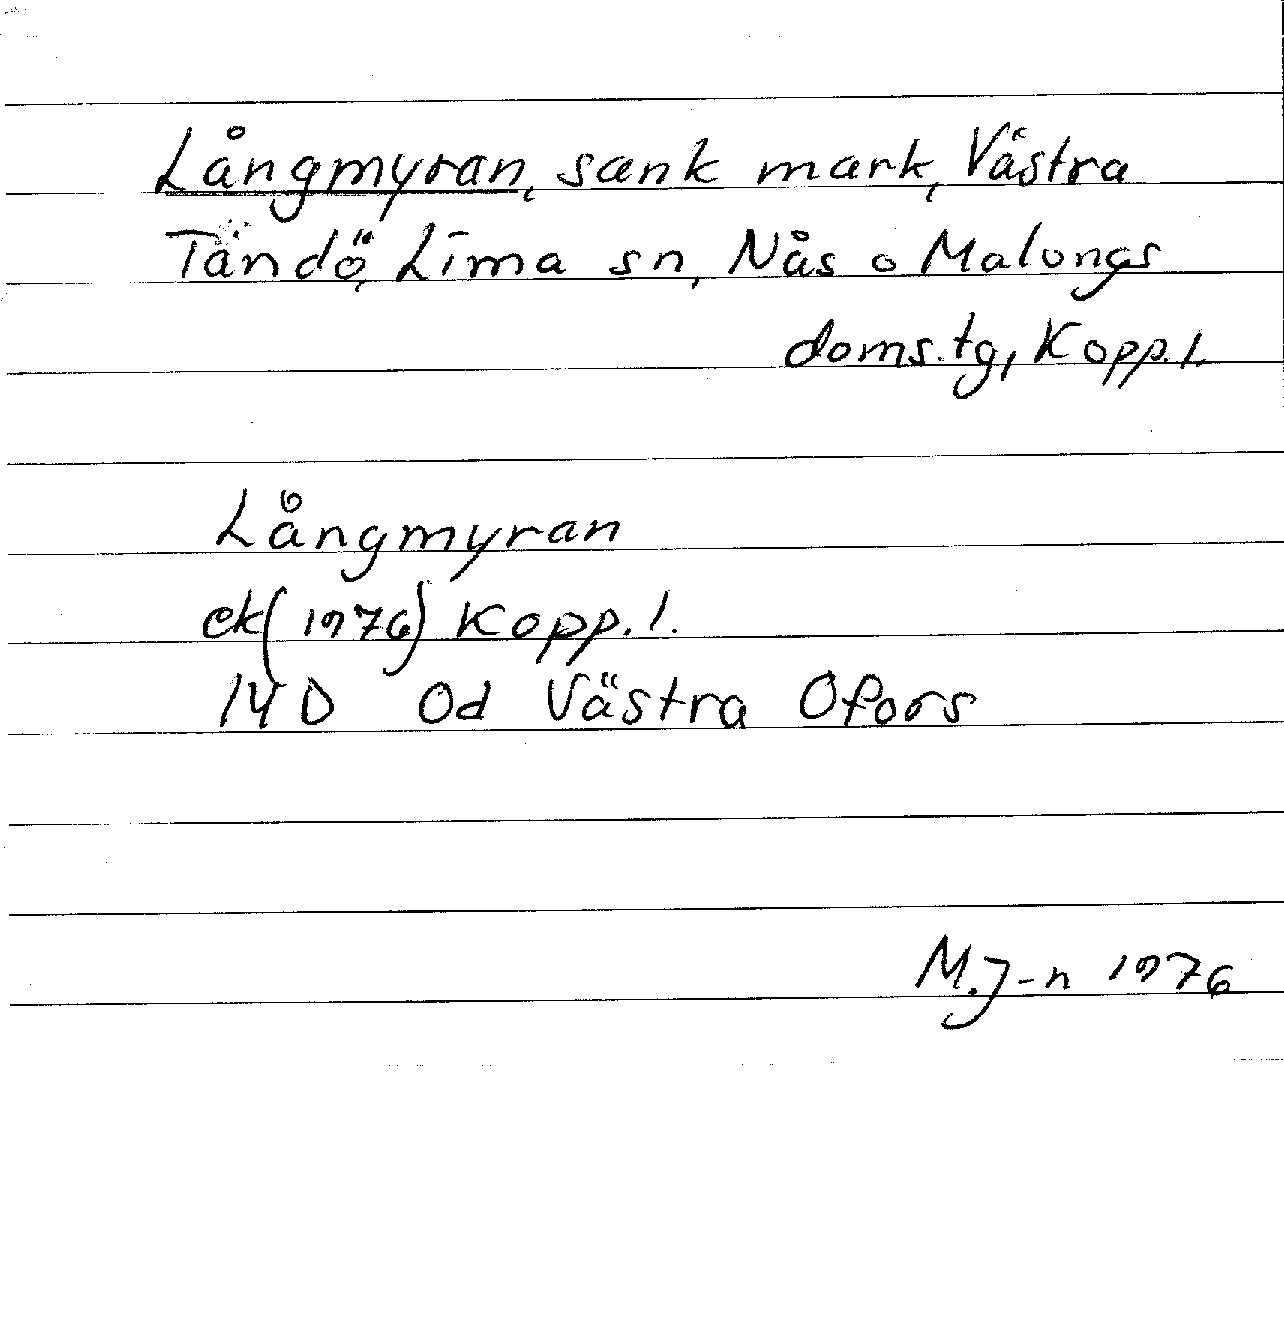 Långmyran, sank mark, Västra
Tandö, Lima sn, Nås o Malungs
doms.tg, Kopp.l.
Långmyran
ek(1976) Kopp.l.
14D Od Västra Ofors
M.J-n 1976